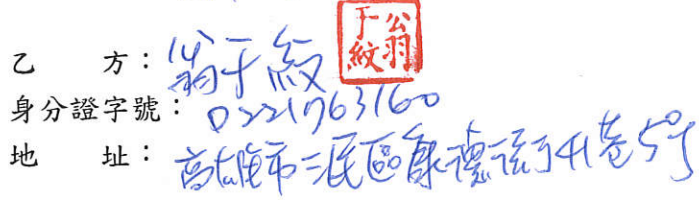 乙 方:翁于紋 翁于紋
身分證字號:D221763160
地 址:高雄市三民區 德 41巷5號